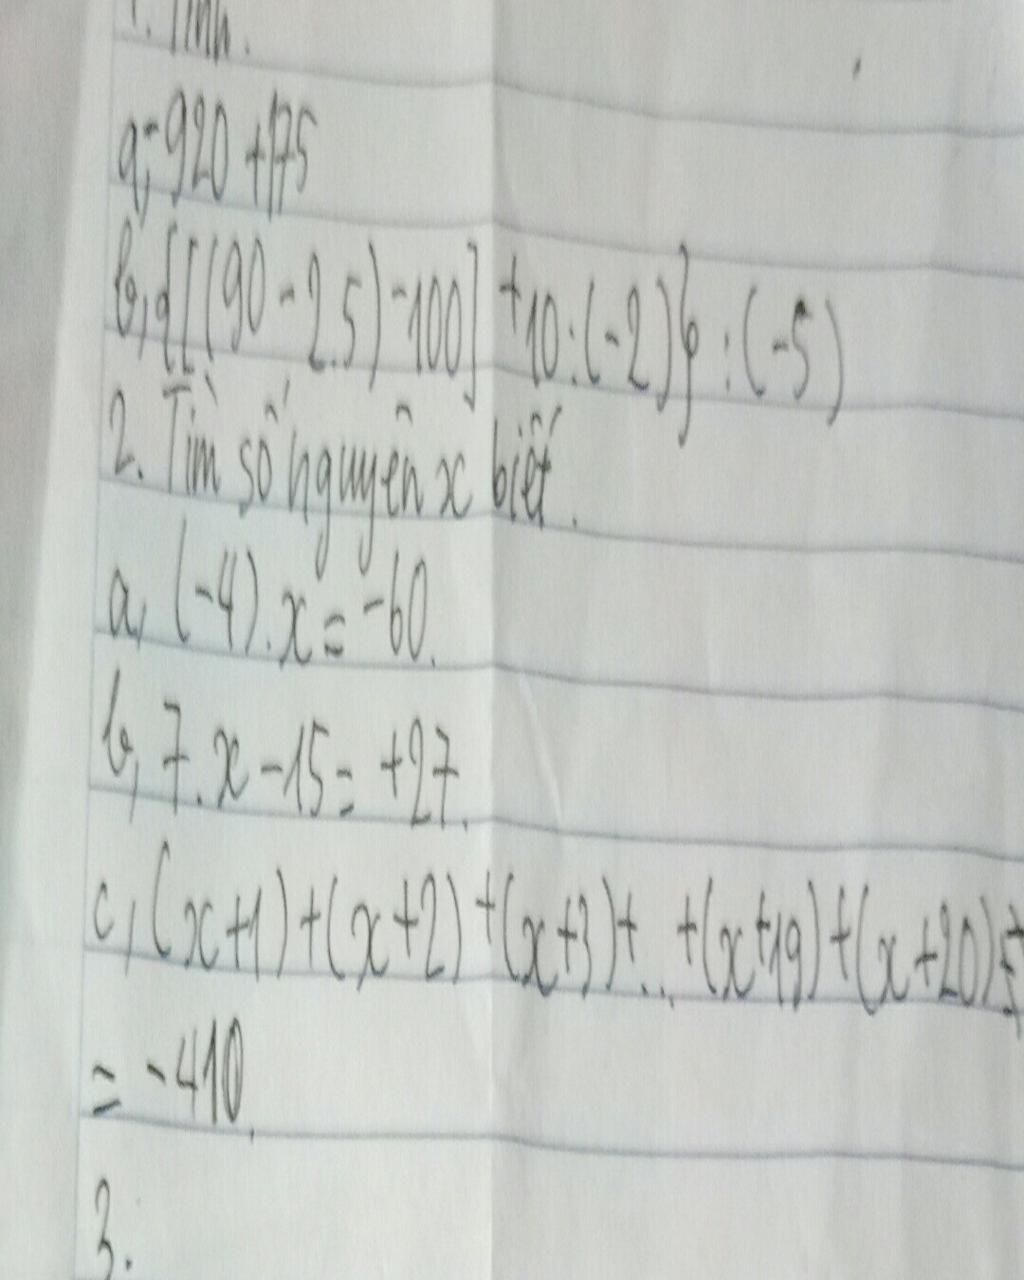 1. Tính.
a, -920 + 175
b, {[(90 - 2.5) - 100] + 10 : (-2)} : (-5)
2. Tìm số nguyên x biết.
a, (-4) . x = -60.
b, 7 . x - 15 = +27.
c, (x+1) + (x+2) + (x+3) + ... + (x+19) + (x+20) =
= -410.
3.